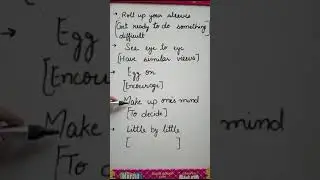 → Roll up your sleeves
[Get ready to do something
difficult]
→ See eye to eye
[Have similar views]
→ Egg on
[Encourage]
Make up one's mind
[To decide]
→ Little by little
[ ]
Make
[To